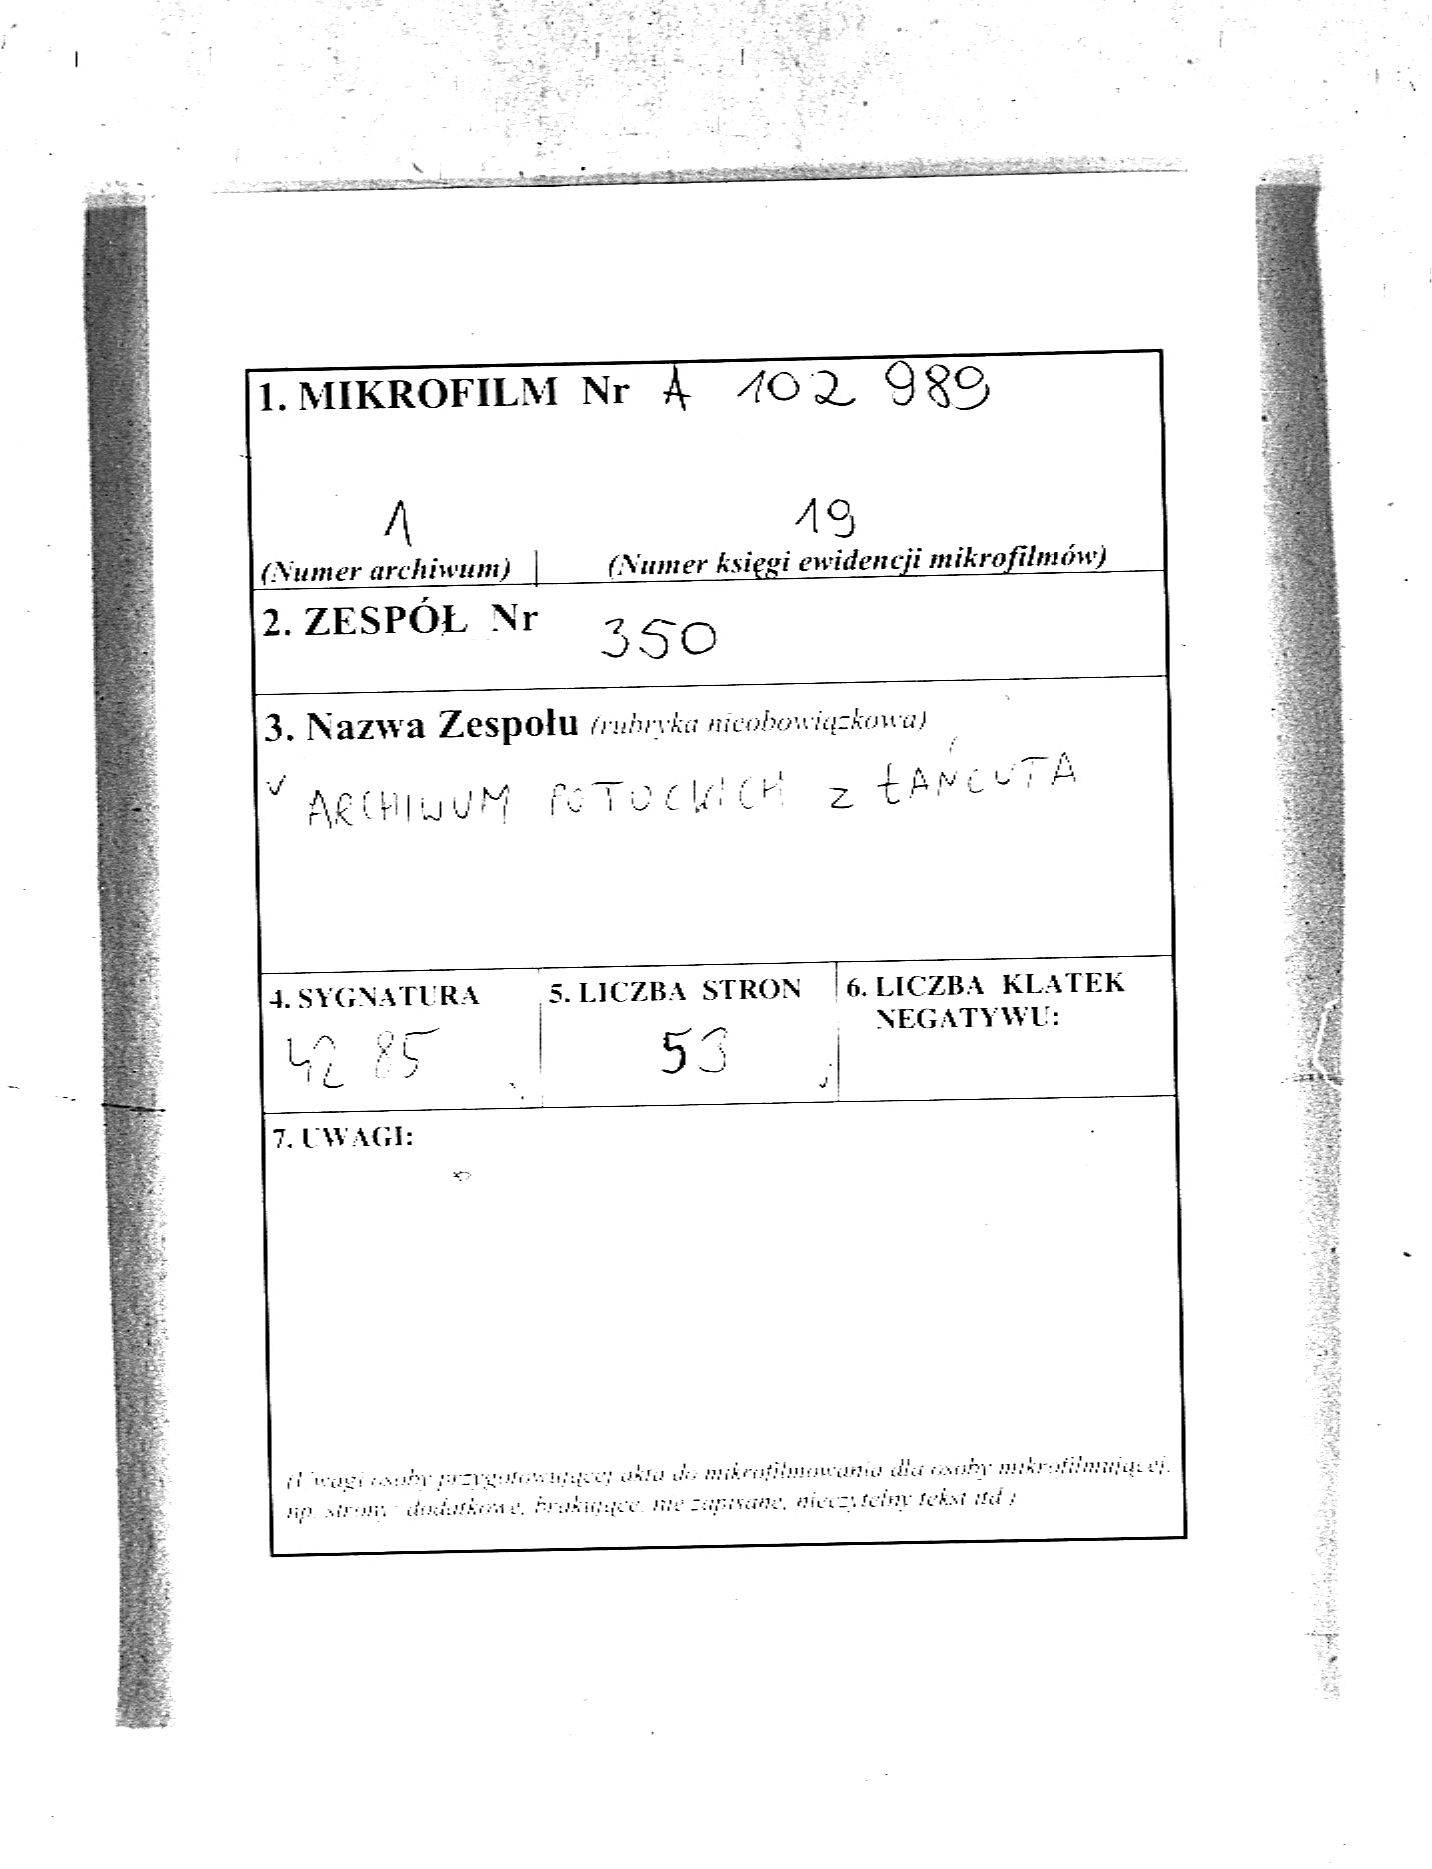 1. MIKROFILM Nr A 102 989
1 19
(Numer archiwum) (Numer księgi ewidencji mikrofilmów)
2. ZESPÓŁ Nr 350
3. Nazwa Zespołu (rubryka nieobowiązkowa)
ARCHIWUM POTOCKICH z ŁAŃCUTA
4. SYGNATURA 5. LICZBA STRON 6. LICZBA KLATEK
NEGATYWU:
4285 53
7. UWAGI:
(Uwagi osoby przygotowującej akta do mikrofilmowania dla osoby mikrofilmującej,
np. strony: dodatkowe, brakujące, nie zapisane, nieczytelny tekst itd.)